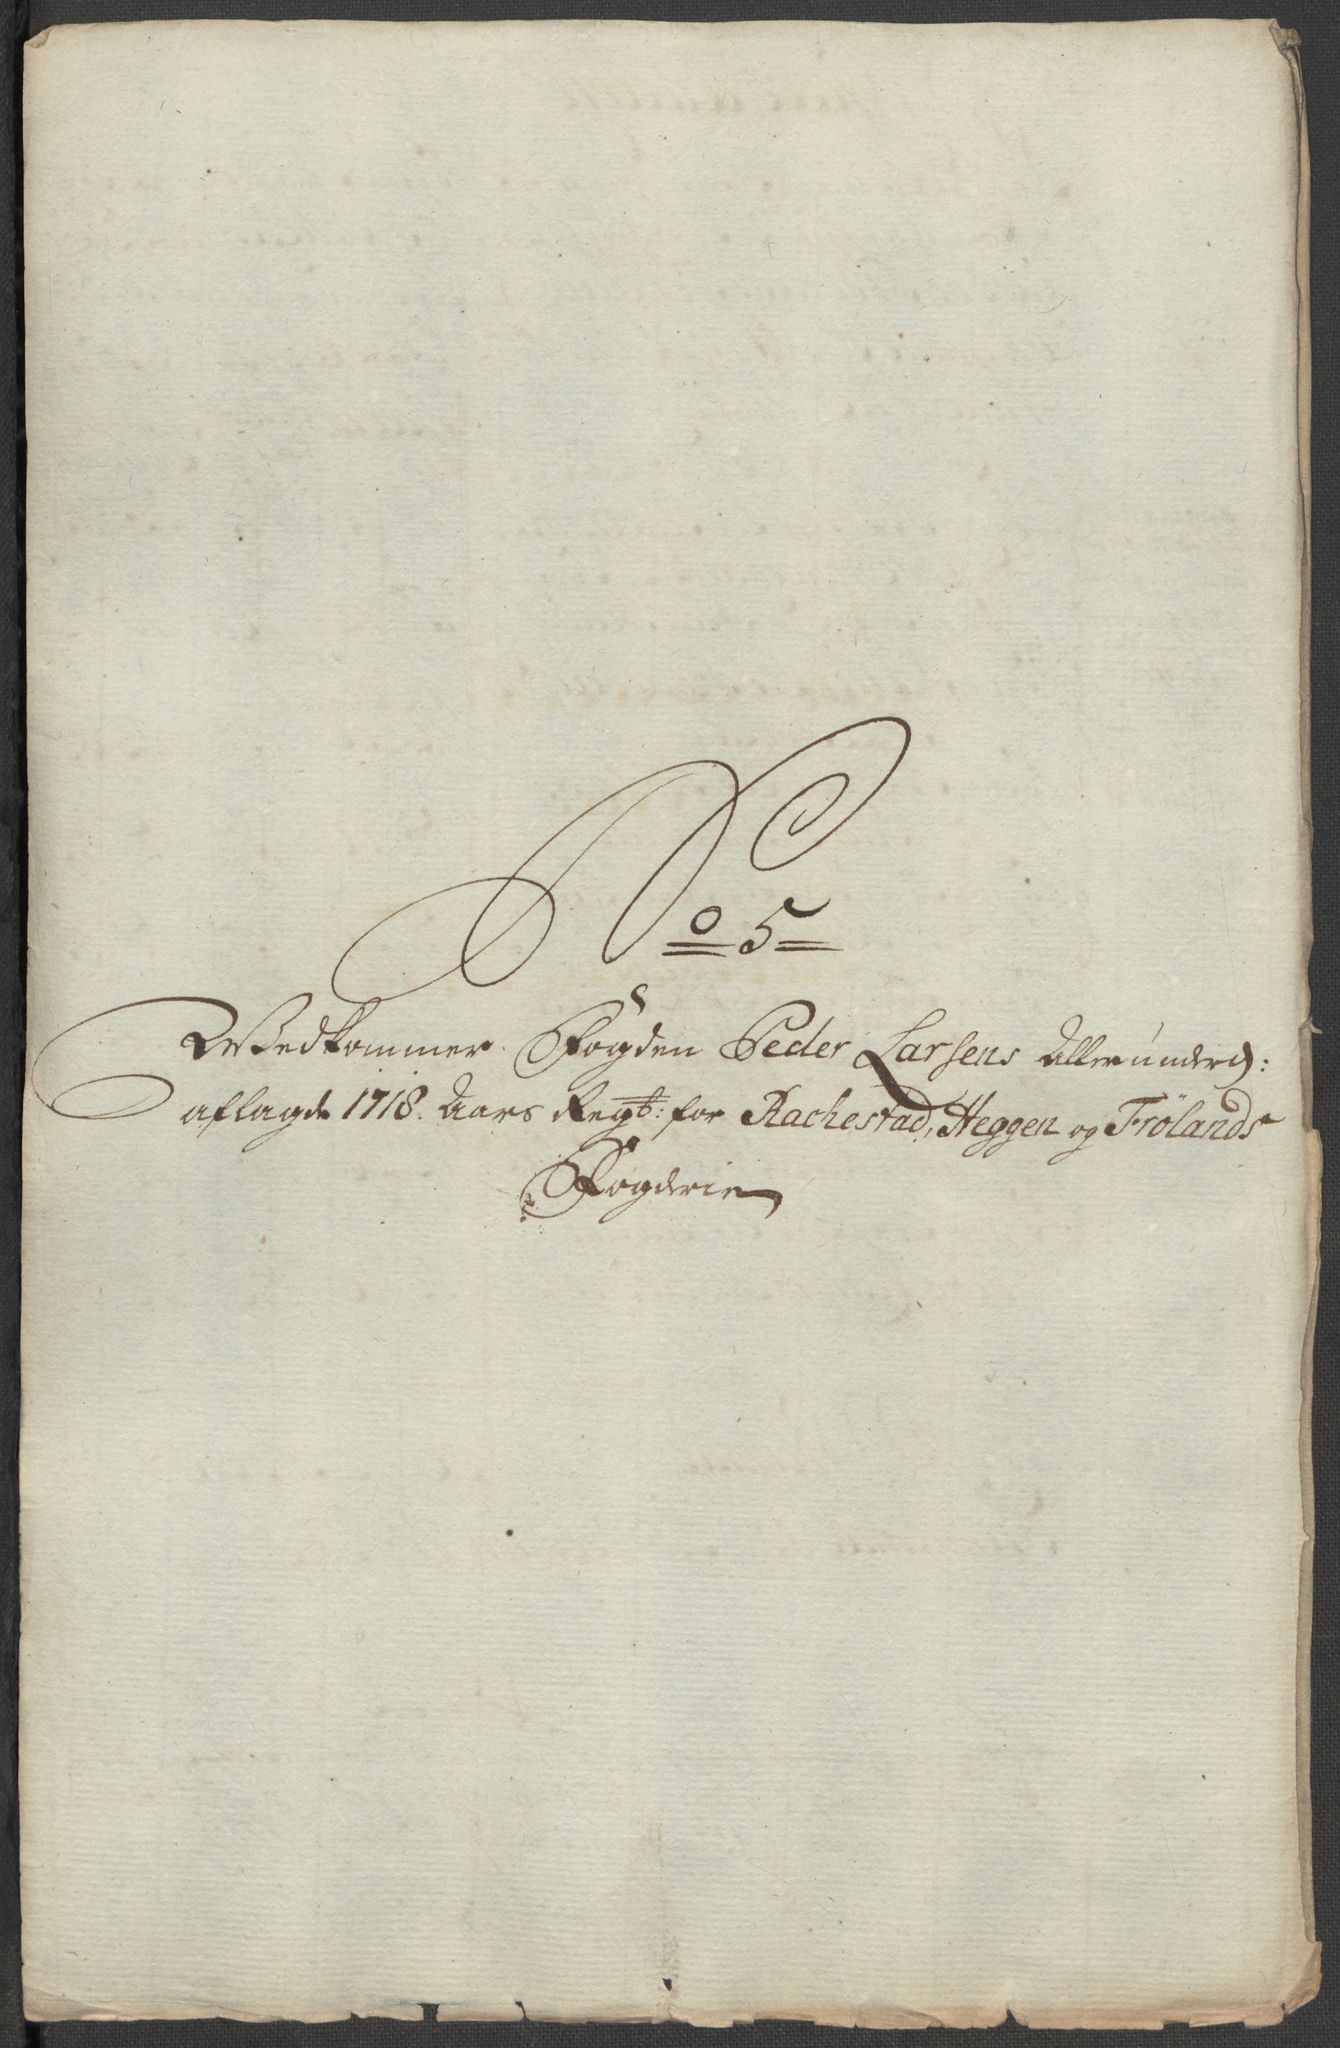 No 5
Vedkommer Fogden Peder Larsens Allerunderd:
aflagde 1718. Aars Regb: for Rachestad, Heggen og Frölands
Fogderie